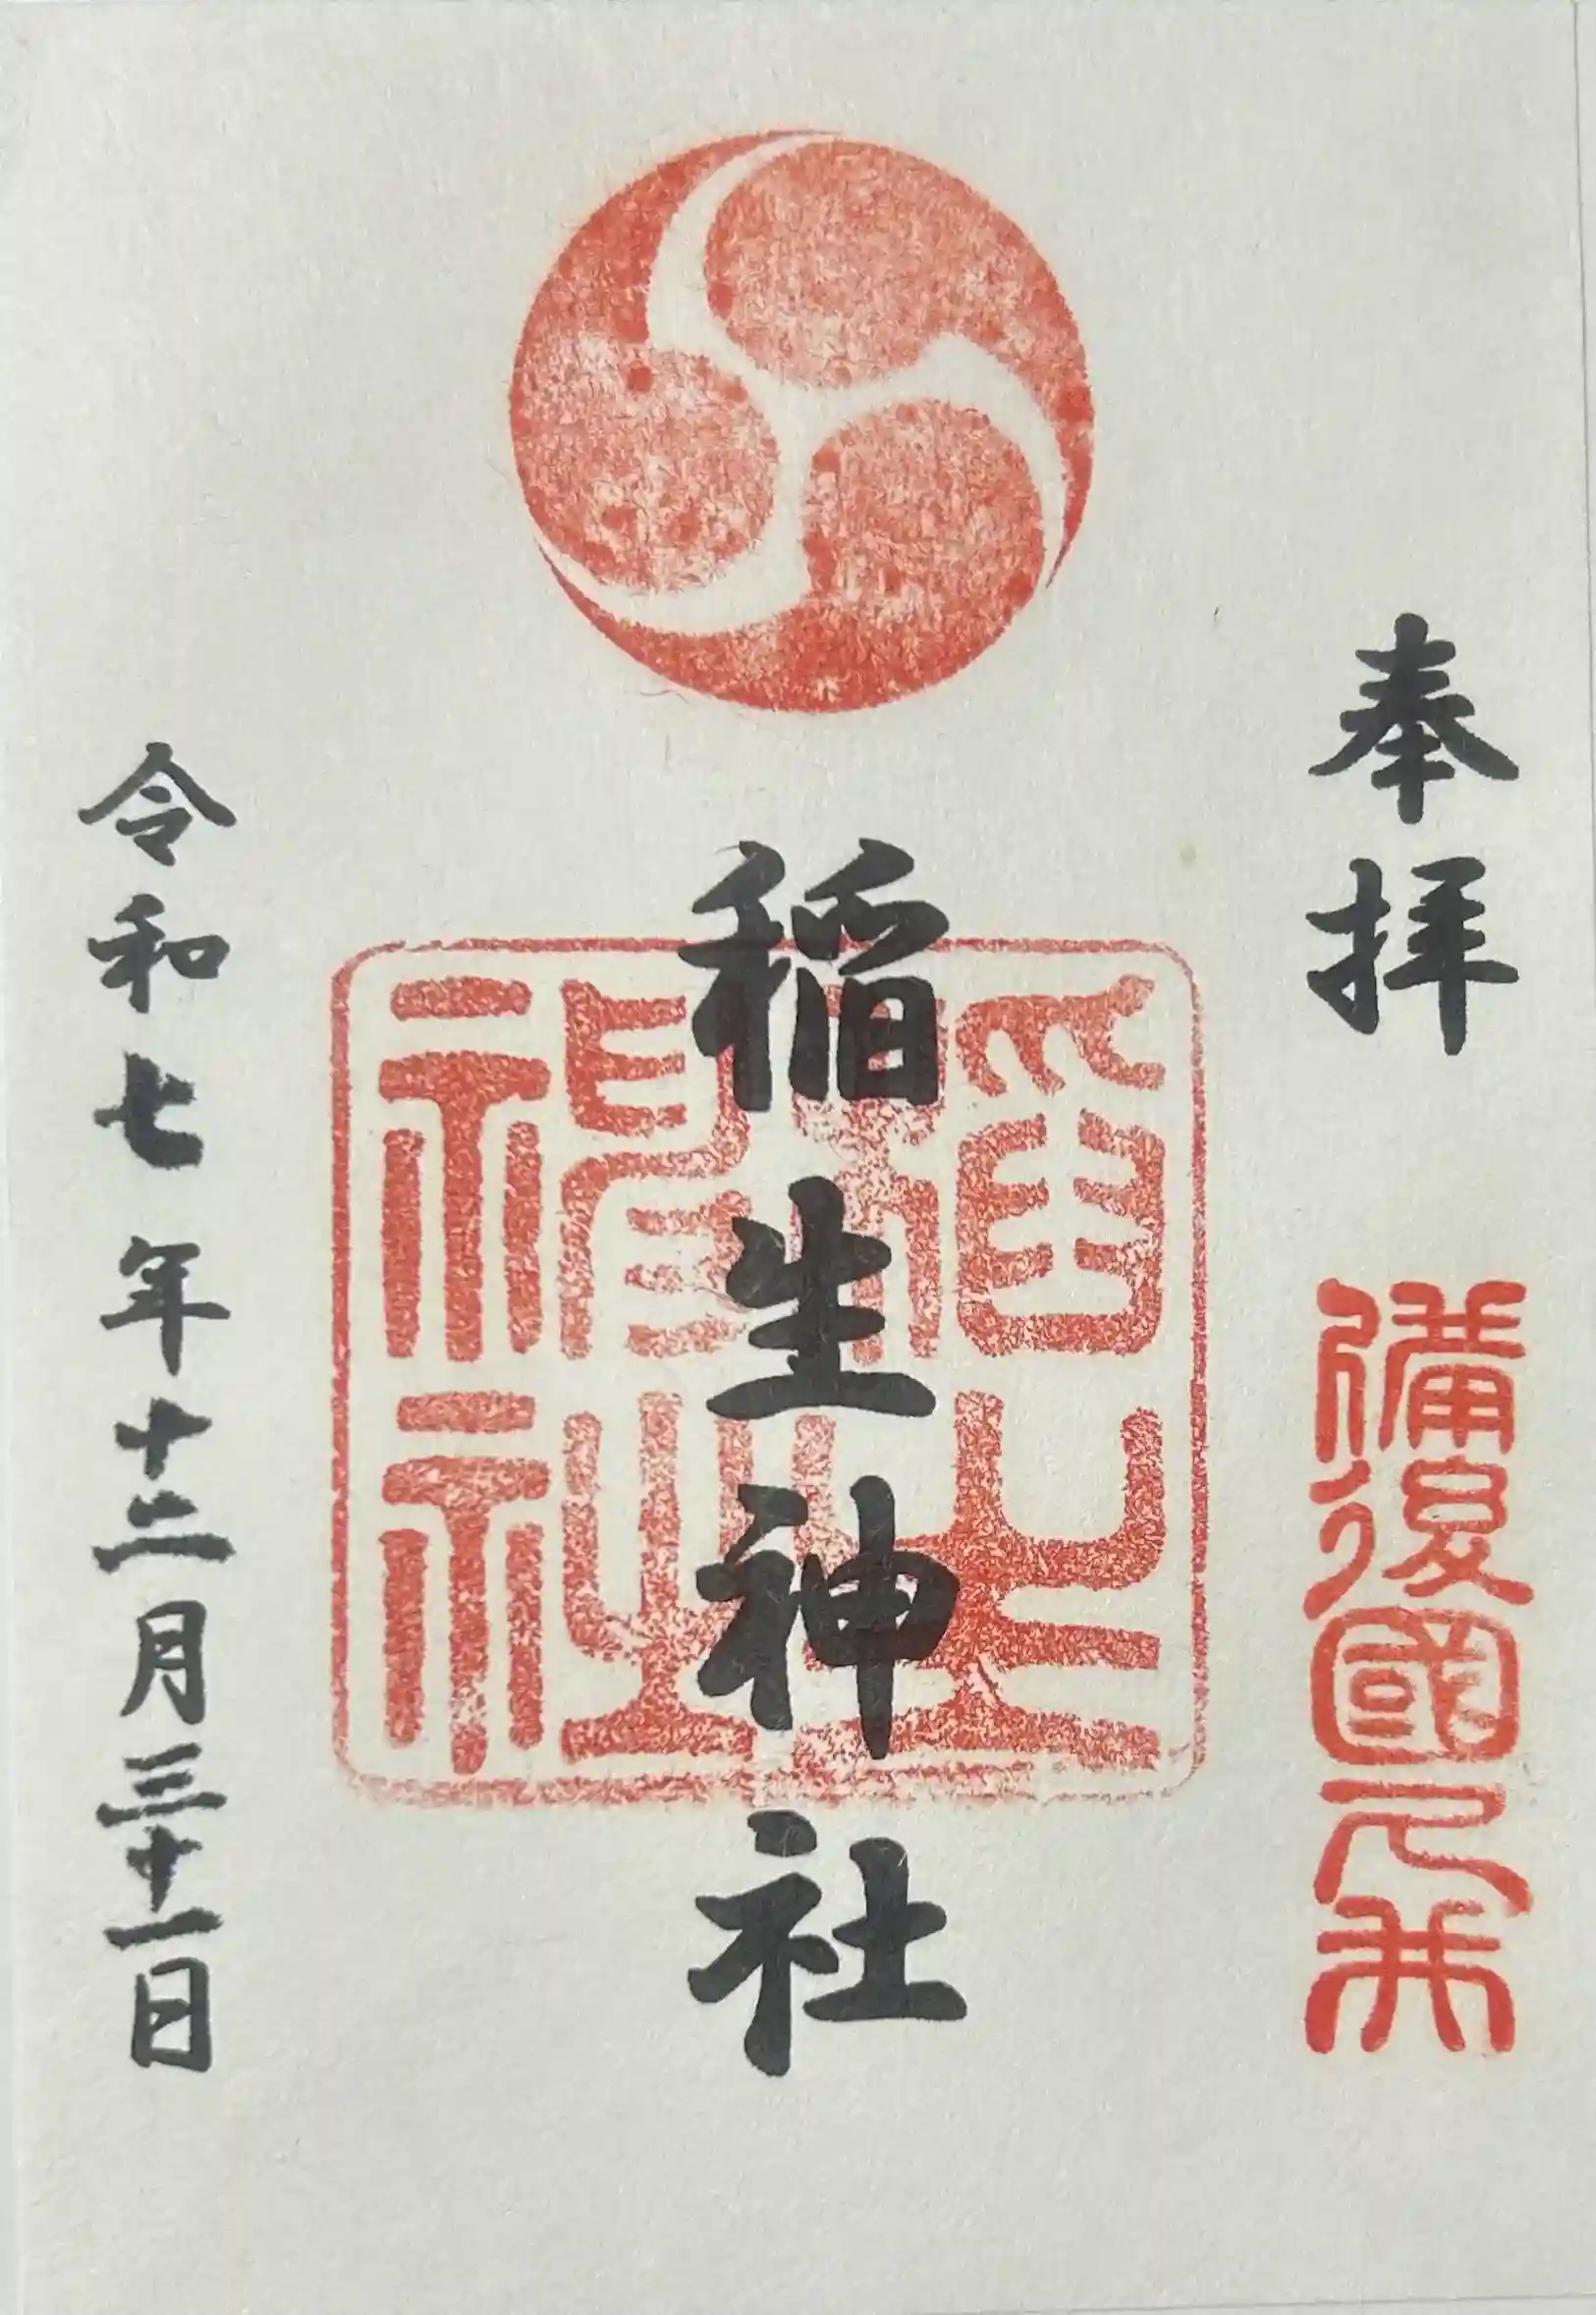 奉拝
備後國
稲生神社
稲生
神社
令和七年十二月三十一日